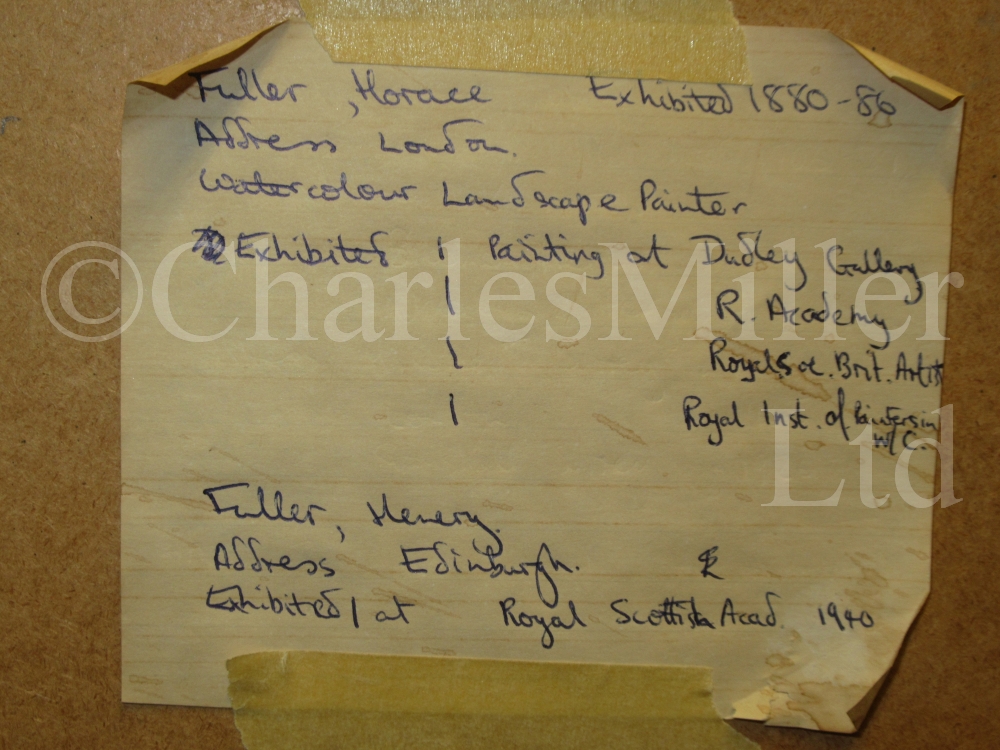 Fuller, Horace Exhibited 1880-86
Address London.
Watercolour Landscape Painter
Exhibited 1 Painting at Dudley Gallery
1 R. Academy
1 Royal Soc. Brit. Artists
1 Royal Inst. of Painters in W/C.
Fuller, Henery.
Address Edinburgh.
Exhibited 1 at Royal Scottish Acad. 1940
©CharlesMiller
Ltd